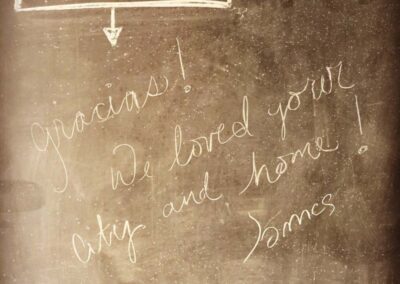 gracias!
We loved your
city and home!